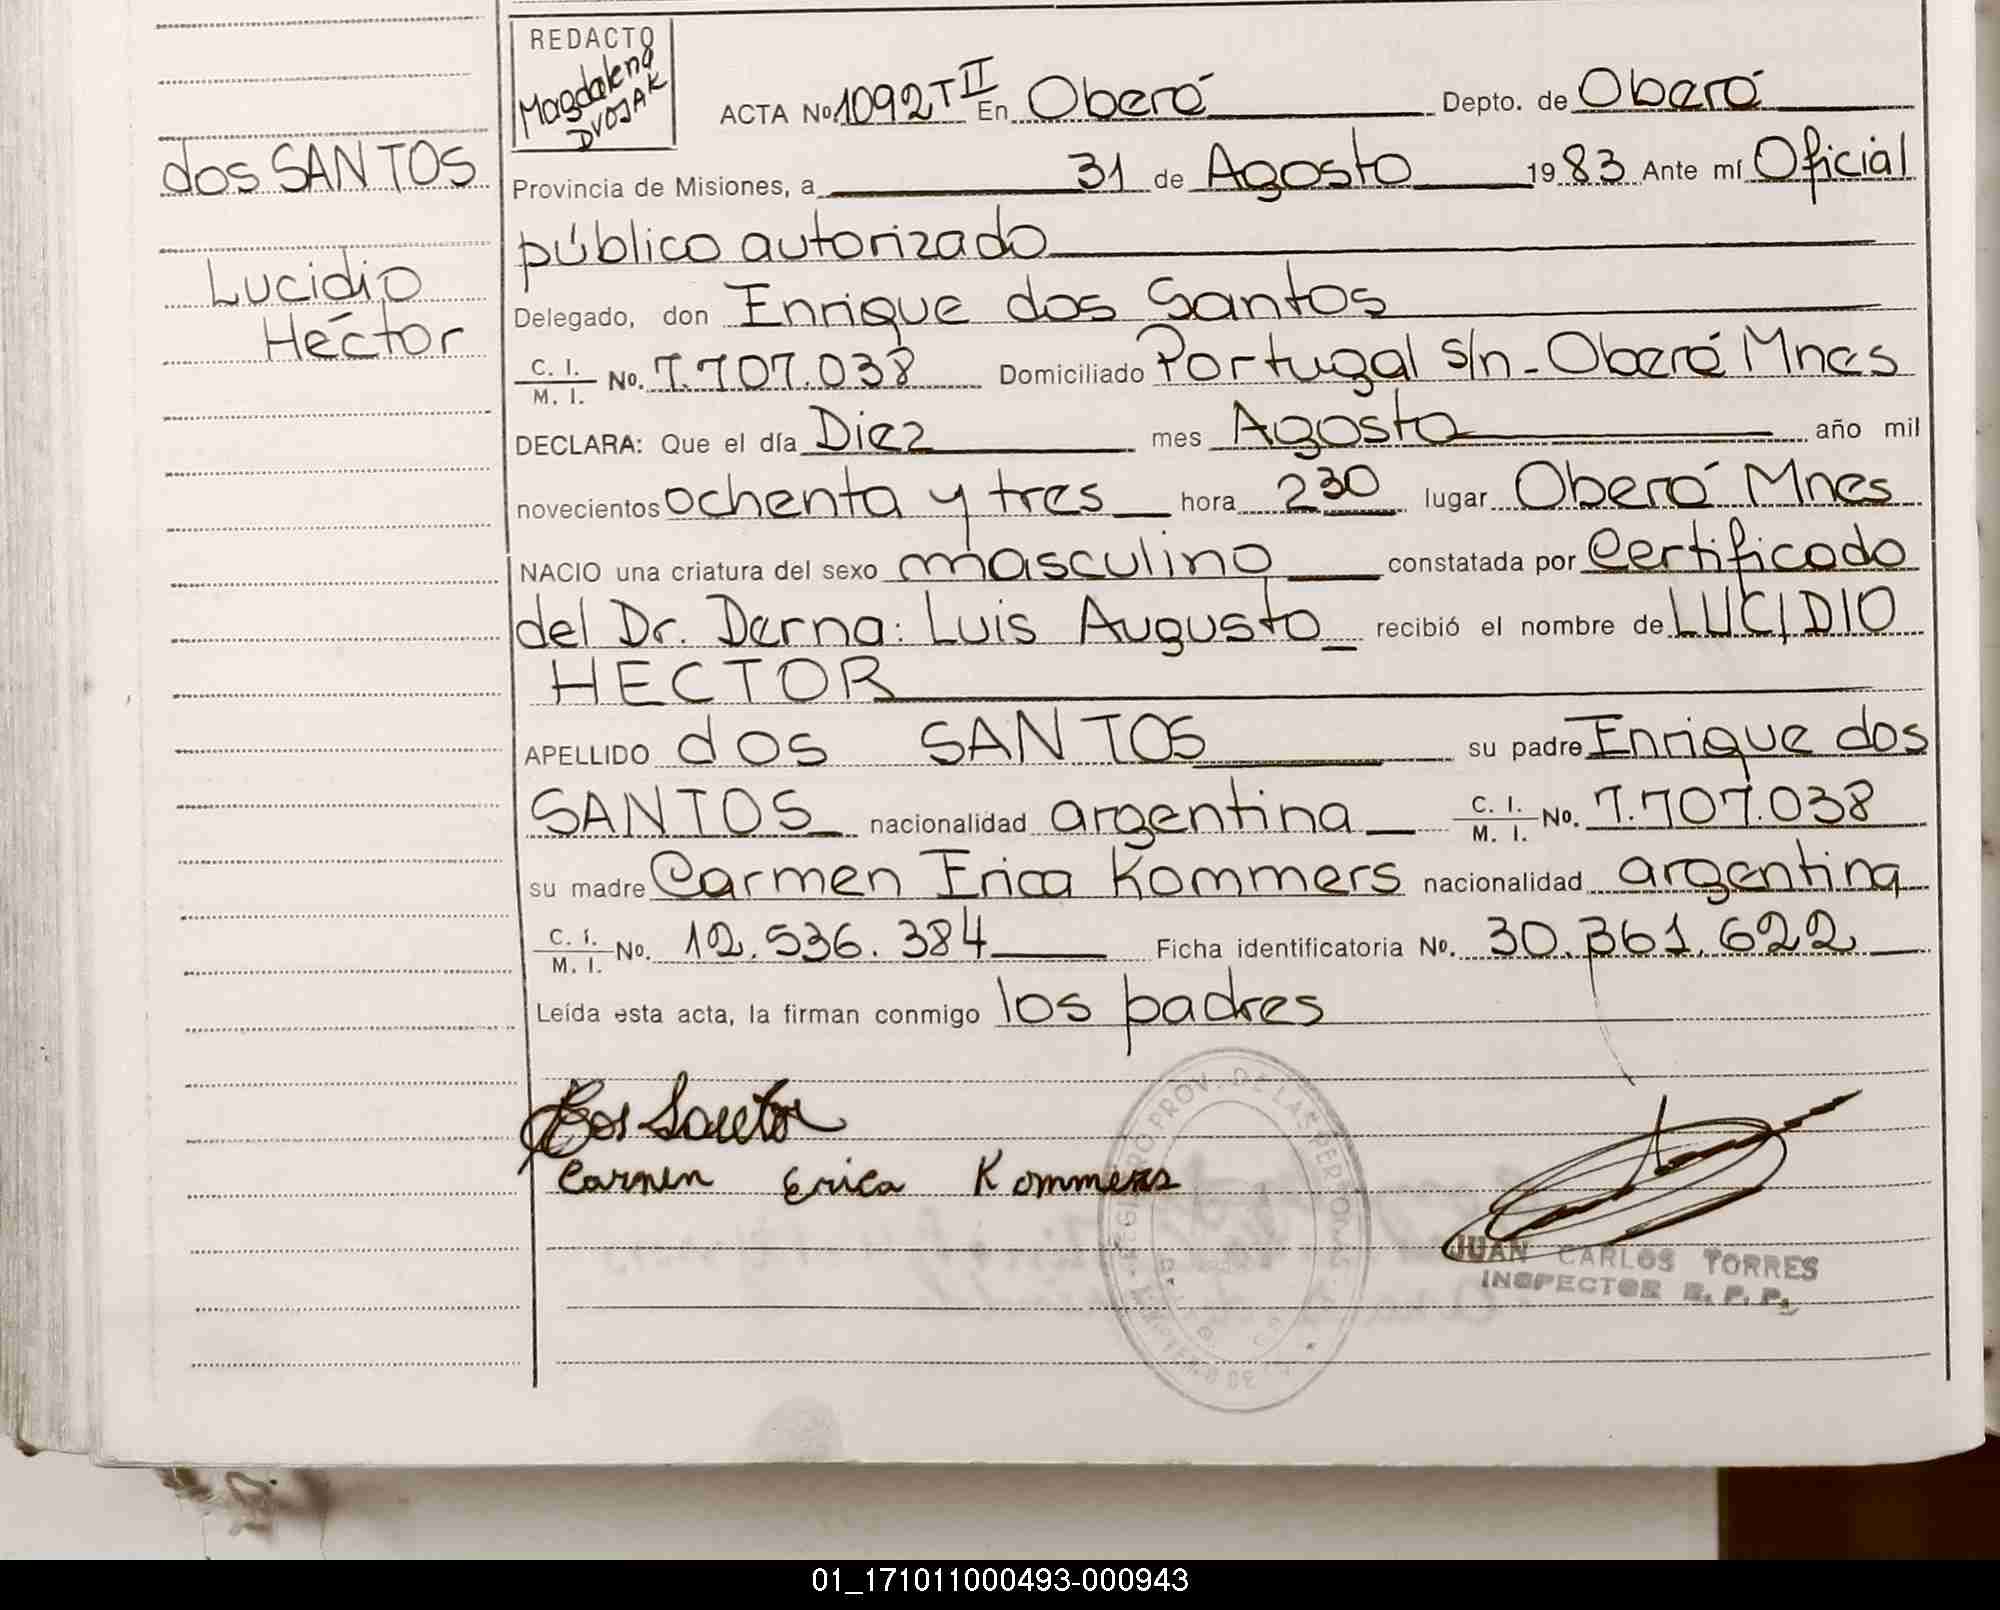 REDACTO
Magdalena
DVOJAK
ACTA No. 1092 T II En Oberá Depto. de Oberá
dos SANTOS
Provincia de Misiones, a 31 de Agosto 1983 Ante mí Oficial
público autorizado
Lucidio
Héctor
Delegado, don Enrique dos Santos
C. I. / M. I. No. 7.707.038 Domiciliado Portugal s/n - Oberá Mnes
DECLARA: Que el día Diez mes Agosto año mil
novecientos ochenta y tres hora 2 30 lugar Oberá Mnes
NACIO una criatura del sexo masculino constatada por Certificado
del Dr. Derna: Luis Augusto recibió el nombre de LUCIDIO
HECTOR
APELLIDO dos SANTOS su padre Enrique dos
SANTOS nacionalidad argentina C. I. / M. I. No. 7.707.038
su madre Carmen Erica Kommers nacionalidad argentina
C. I. / M. I. No. 12.536.384 Ficha identificatoria No. 30.361.622
Leída esta acta, la firman conmigo los padres
Dos Santos
Carmen Erica Kommers
REGISTRO PROV. DE LAS PERSONAS
JUAN CARLOS TORRES
INSPECTOR R. P. P.
01_171011000493-000943